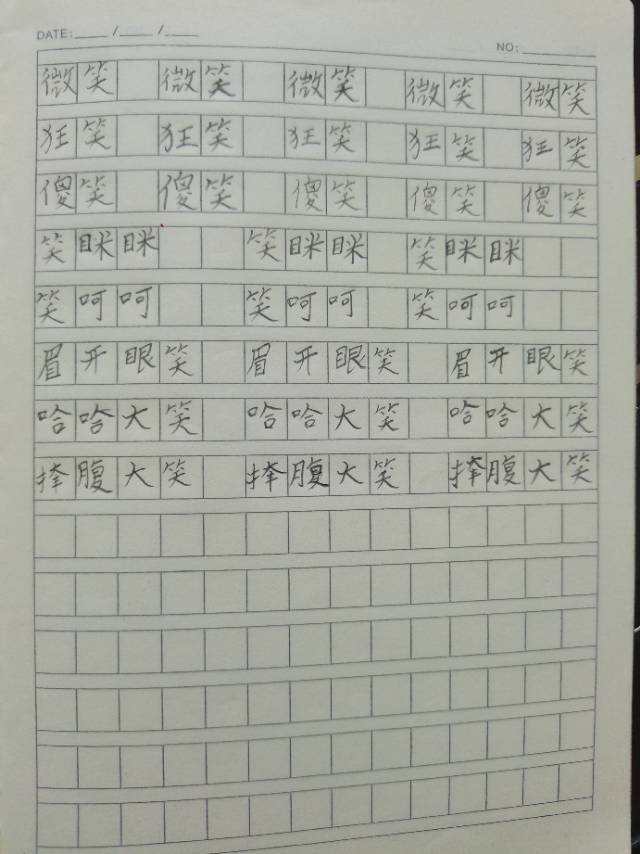 DATE: / /
NO:
微笑 微笑 微笑 微笑 微笑
狂笑 狂笑 狂笑 狂笑 狂笑
傻笑 傻笑 傻笑 傻笑 傻笑
笑眯眯 笑眯眯 笑眯眯
笑呵呵 笑呵呵 笑呵呵
眉开眼笑 眉开眼笑 眉开眼笑
哈哈大笑 哈哈大笑 哈哈大笑
捧腹大笑 捧腹大笑 捧腹大笑